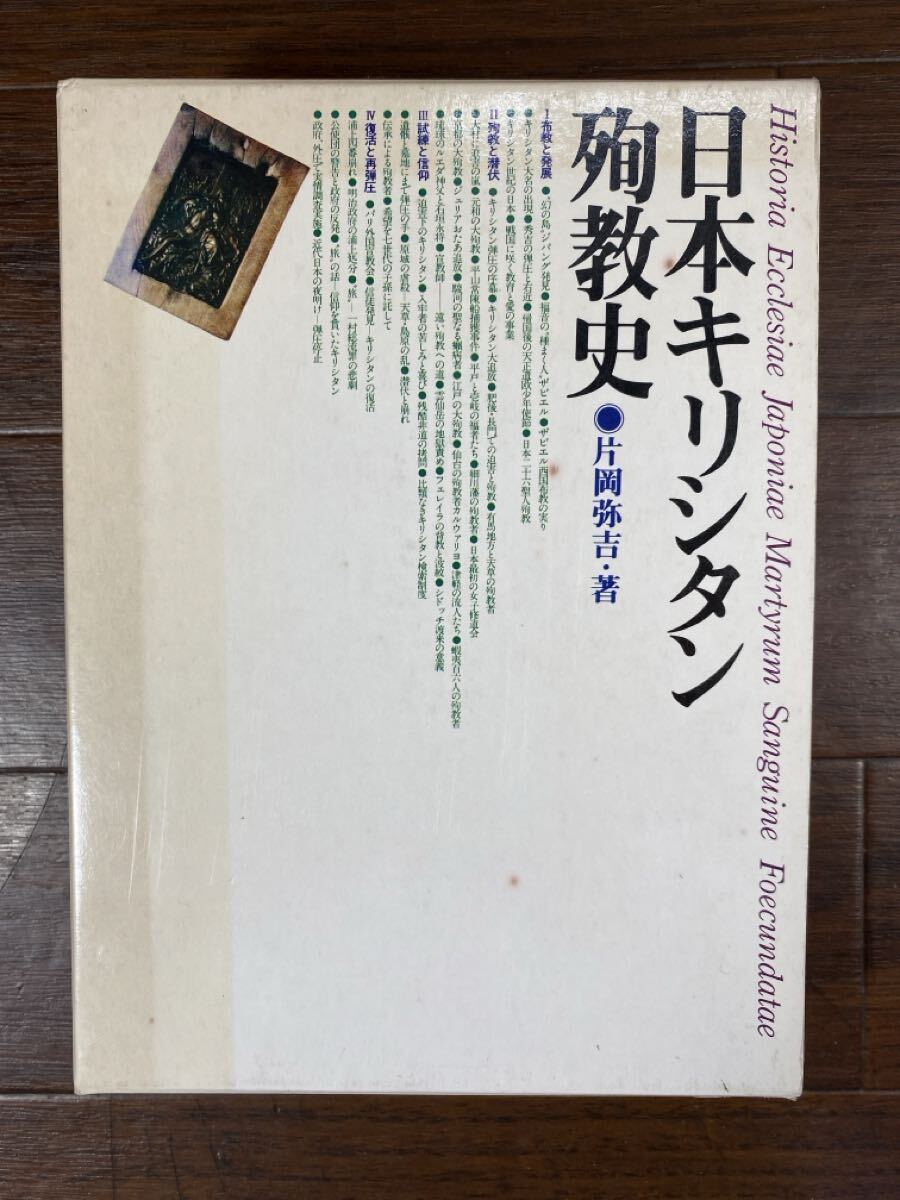 Historia Ecclesiae Japoniae Martyrum Sanguine Foecundatae
日本キリシタン
殉教史●片岡弥吉・著
I 布教と発展 ●“幻の島”ジパング発見●福音の“種まく人”ザビエル●ザビエル西国布教の実り
●キリシタン大名の出現●秀吉の弾圧と右近●帰国後の天正遣欧少年使節●日本二十六聖人殉教
●キリシタン世紀の日本●戦国に咲く教育と愛の事業
II 殉教と潜伏 ●キリシタン弾圧の序幕●キリシタン大追放●肥後・長門での迫害と殉教●有馬地方と天草の殉教者
●大村に迫害の嵐●元和の大殉教●平山常陳船捕獲事件●平戸と壱岐の福者たち●細川藩の殉教者●日本最初の女子修道会
●京都の大殉教●ジュリアおたあ追放●駿河の聖なる癩病者●江戸の大殉教●仙台の殉教者カルワァリヨ●津軽の流人たち●蝦夷百六人の殉教者
●琉球のルエダ神父と石垣永将●宣教師――遠い殉教への道●雲仙岳の地獄責め●フェレイラの背教と波紋●シドッチ渡来の意義
III 試練と信仰 ●迫害下のキリシタン●入牢者の苦しみと喜び●残酷非道の拷問●比類なきキリシタン検索制度
●遺骸と墓地にまで弾圧の手●原城の虐殺―天草・島原の乱●潜伏と崩れ
●伝承による殉教者●希望を七世代の子孫に託して
IV 復活と再弾圧 ●パリ外国宣教会●信徒発見―キリシタンの復活
●浦上四番崩れ●明治政府の浦上処分●“旅”―一村総流罪の悲劇
●公使団の警告と政府の反発●“旅”の話―信仰を貫いたキリシタン
●政府、外圧で実情調査実施●近代日本の夜明け―弾圧停止